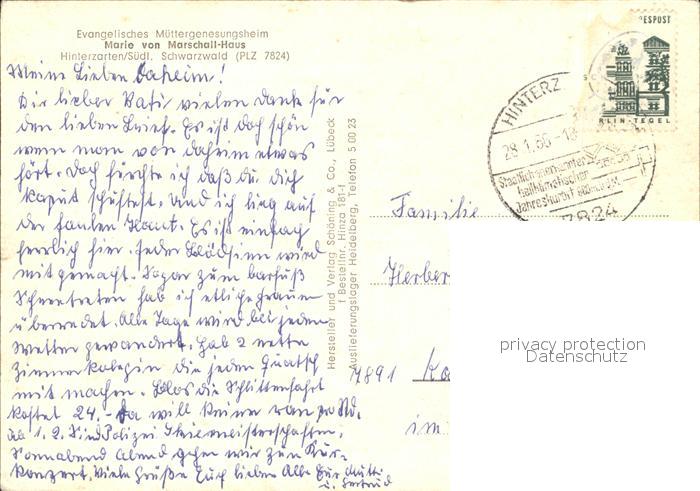 Evangelisches Müttergenesungsheim
Marie von Marschall-Haus
Hinterzarten/Südl. Schwarzwald (PLZ 7824)
Meine Lieben Daheim!
Dir lieber Vati vielen Dank für
den lieben Brief. Es ist doch schön
wenn man von daheim etwas
hört. Doch fürchte ich daß du dich
kaput schuftest. Und ich lieg auf
der faulen Haut. Es ist einfach
herrlich hier. Jeder Blödsinn wird
mitgemacht. Sogar zum barfuß
Schneetreten hab ich etliche Frauen
überredet. Alle Tage wird bei jedem
Wetter gewandert. Hab 2 nette
Zimmerkolegin die jeden Quatsch
mit machen. Blos die Schlittenfahrt
kostet 24.- Da will keine ran
ab 1. 2. sind Polizei Skiemeisterschaften.
Sonnabend Abend gehen wir zum Kur-
konzert. Viele Grüße Euch lieben Alle Eur Mutti
u. Gertrud
Hersteller und Verlag Schöning & Co., Lübeck
f Bestellnr. Hinza 181-f
Auslieferungslager Heidelberg, Telefon 5 00 23
ESPOST
RLIN-TEGEL
HINTERZ
28.1.66-18
heilklimatischer
7824
Familie
Herber
7891
im
privacy protection
Datenschutz